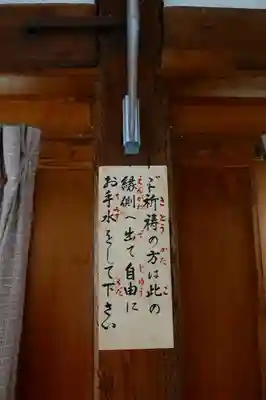 ご祈祷の方は此の
縁側へ出て自由に
お手水をして下さい